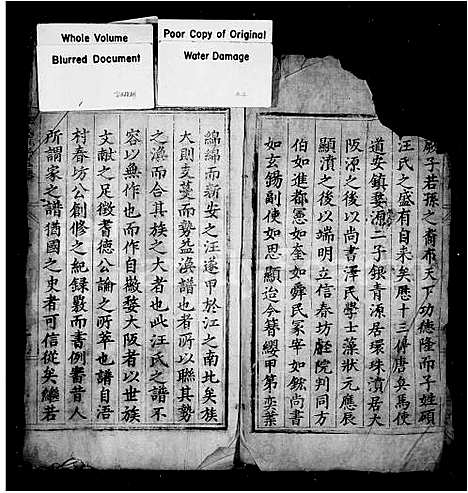 Whole Volume
Blurred Document
Poor Copy of Original
Water Damage
厥子若孫之裔布天下功德隆而子姓碩
汪氏之盛有自来矣歷十三傳唐奐馬使
道安鎮婺源二子銀青源居環珠濆居大
阪源之後以尚書澤民學士藻狀元應辰
顯濆之後以端明立信春坊戲院判同方
伯如進都憲如奎如舜民冢宰如鋐尚書
如玄錫副使如思顯迨今簪纓甲第奕葉
綿綿而新安之汪遂甲於江之南北矣族
大則支蔓而勢益渙譜也者所以聯其勢
之渙而合其族之大者也此汪氏之譜不
容以無作也而作自𢾗婺大阪者以世族
文献之足徴耆德公諭之所萃也譜自浯
村春坊公創修之紀録覈而書例審昔人
所謂家之譜猶國之史者可信從矣繼若